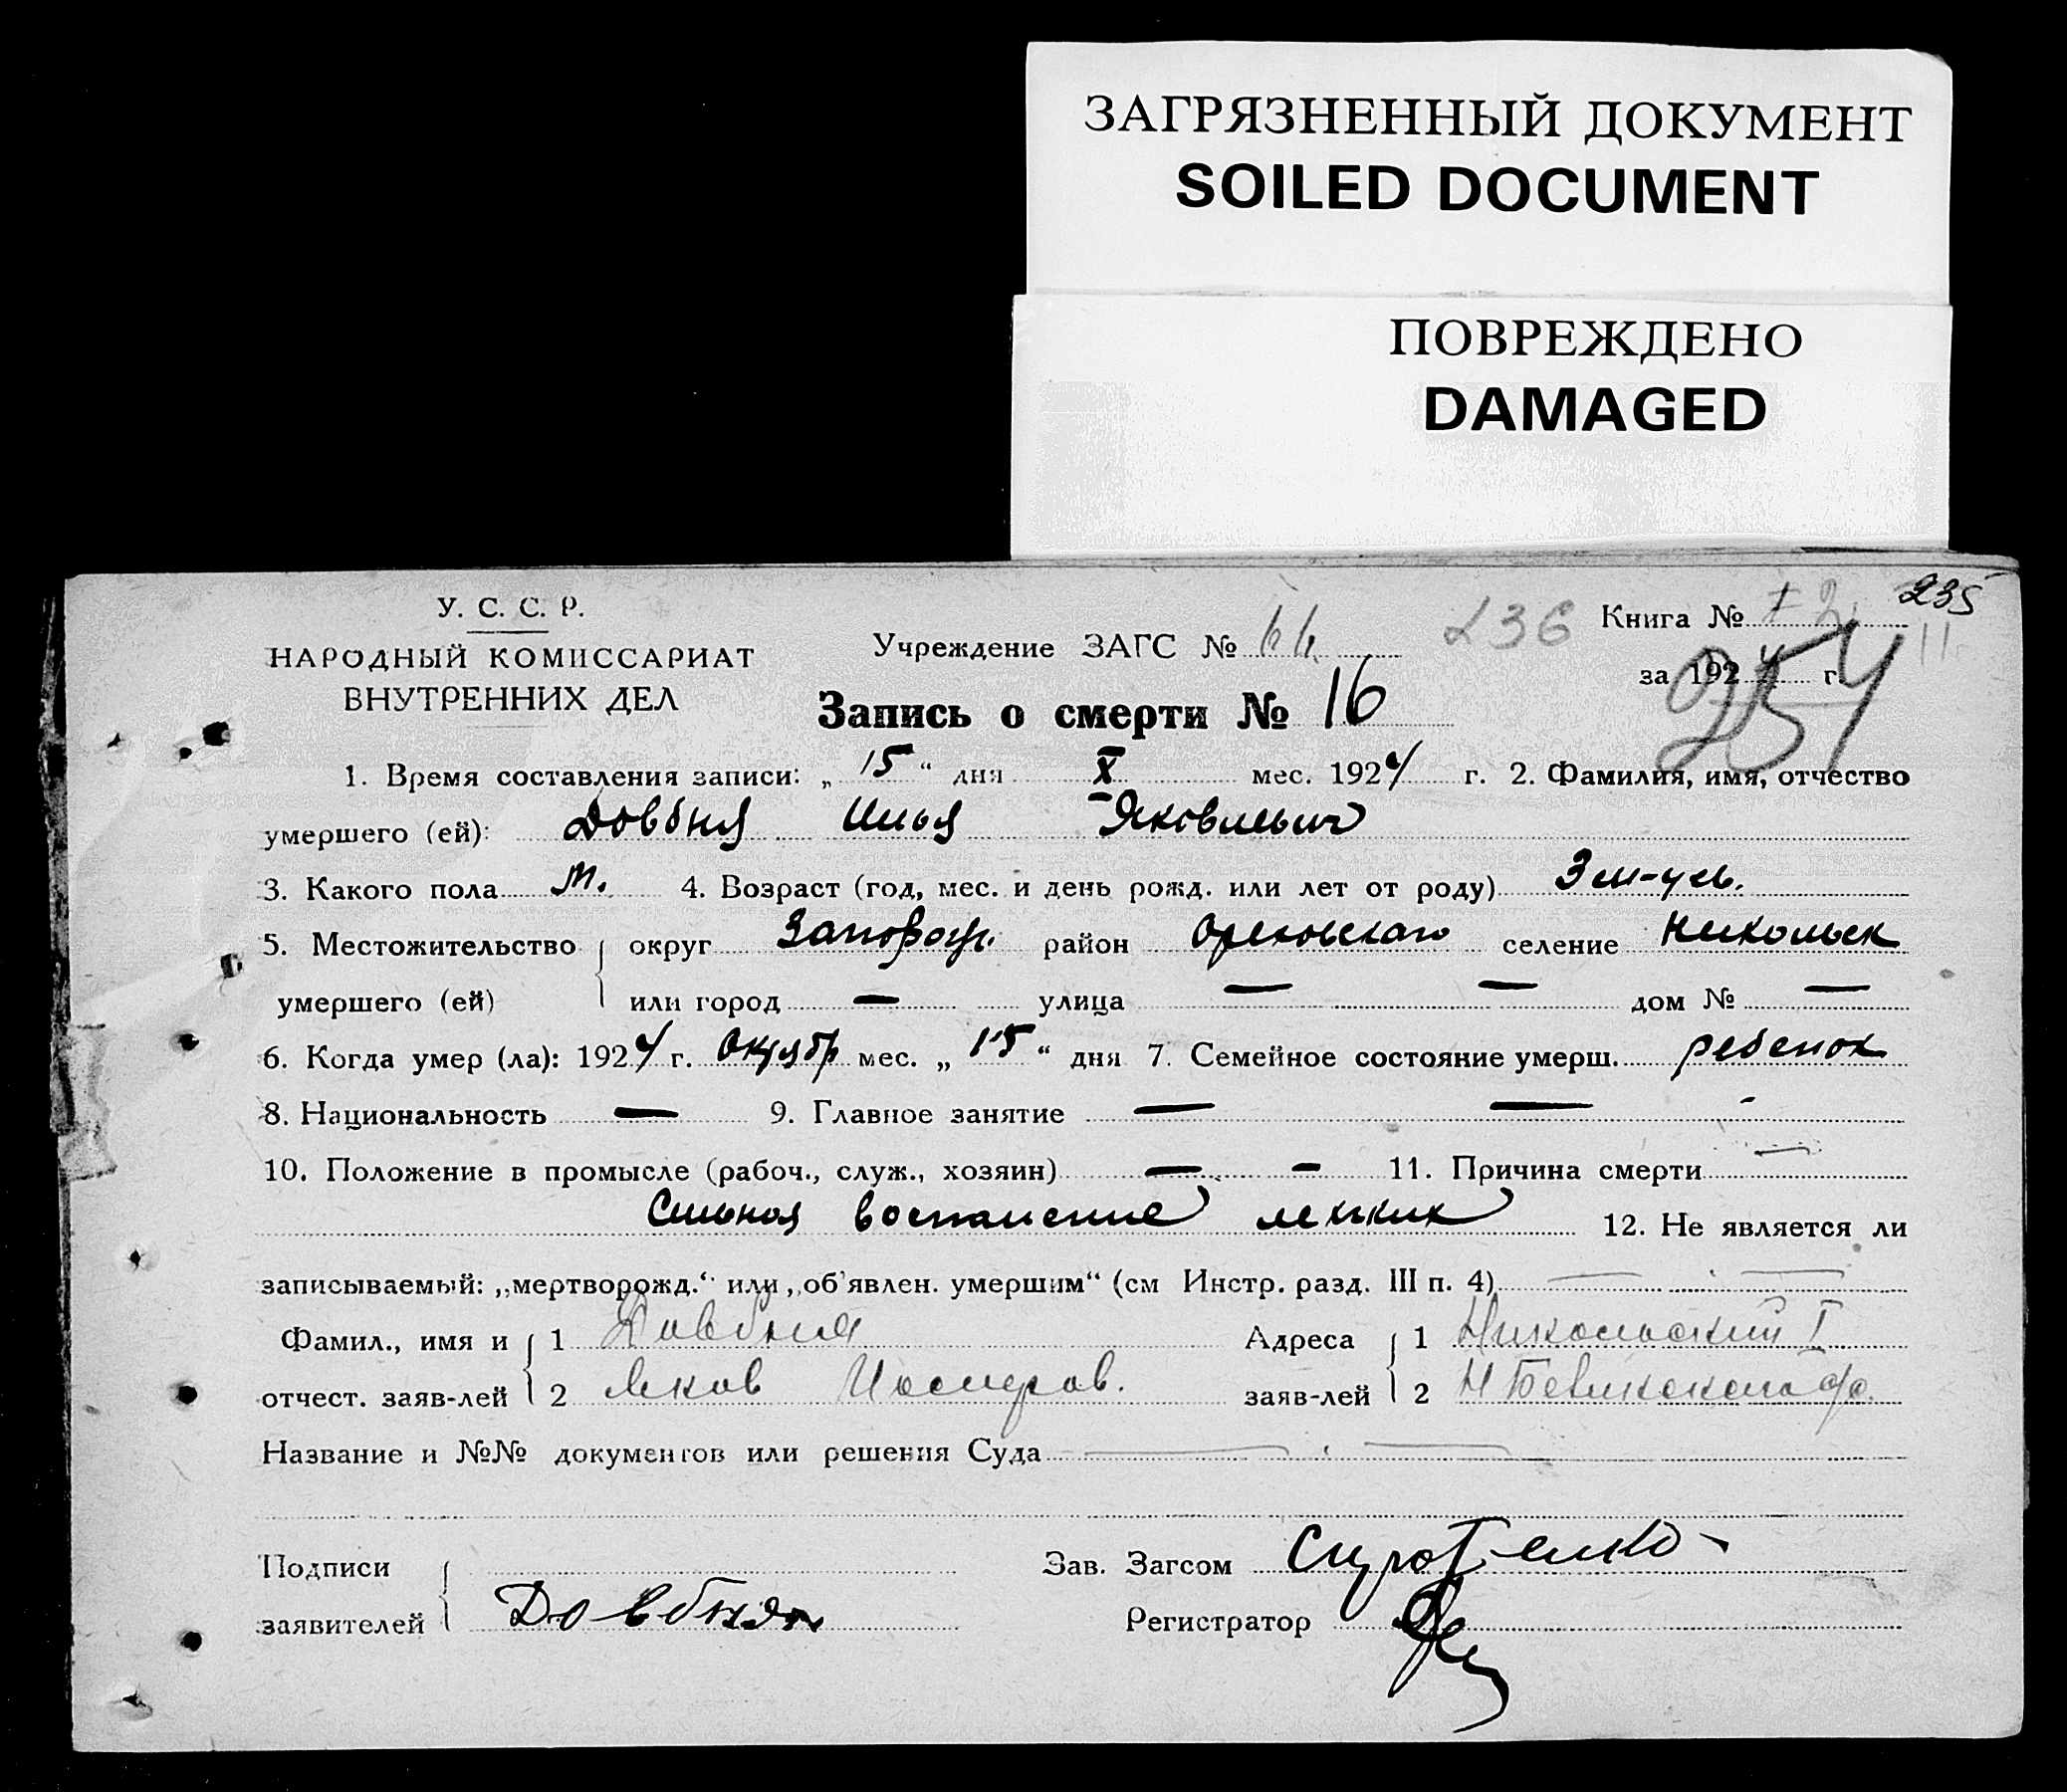 ЗАГРЯЗНЕННЫЙ ДОКУМЕНТ
SOILED DOCUMENT
ПОВРЕЖДЕНО
DAMAGED
235
У. С. С. Р.
НАРОДНЫЙ КОМИССАРИАТ
ВНУТРЕННИХ ДЕЛ
Учреждение ЗАГС №
236
Книга №
за 1924 г.
254
Запись о смерти № 16
1. Время составления записи: „15“ дня X мес. 1924 г. 2. Фамилия, имя, отчество
умершего (ей): Довбня Илья Яковлевич
3. Какого пола м. 4. Возраст (год, мес. и день рожд. или лет от роду) 3 м-ць.
5. Местожительство округ Запорож. район Ореховского селение Никольск
умершего (ей) или город — улица — — дом № —
6. Когда умер (ла): 1924 г. октябр мес. „15“ дня 7. Семейное состояние умерш. ребенок
8. Национальность — 9. Главное занятие — —
10. Положение в промысле (рабоч., служ., хозяин) — — 11. Причина смерти —
Сильная воспаление легких 12. Не является ли
записываемый: „мертворожд.“ или „об’явлен. умершим“ (см Инстр. разд. III п. 4) — —
Фамил., имя и 1 Довбня Адреса 1 Никольский
отчест. заяв-лей 2 Яков заяв-лей 2
Название и №№ документов или решения Суда — —
Подписи Зав. Загсом Сиротенко
заявителей Довбня Регистратор